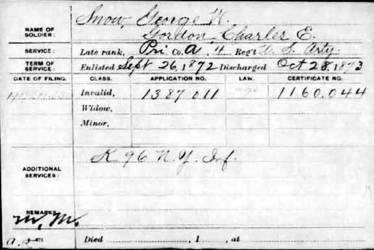 Snow, George W.
NAME OF SOLDIER: Gordon, Charles E.
SERVICE: Late rank, Pri Co. A, 4 Reg't U. S. Arty.
TERM OF SERVICE: Enlisted Sept 26, 1872 Discharged Oct 28, 1873
DATE OF FILING. CLASS. APPLICATION NO. CERTIFICATE NO.
Invalid, 1387011 1160.044
Widow,
Minor,
ADDITIONAL SERVICES: K 96 N.Y. Inf.
REMARKS:
Died , 1 , at